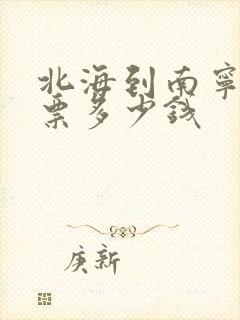 北海到南宁
票多少钱
庚新